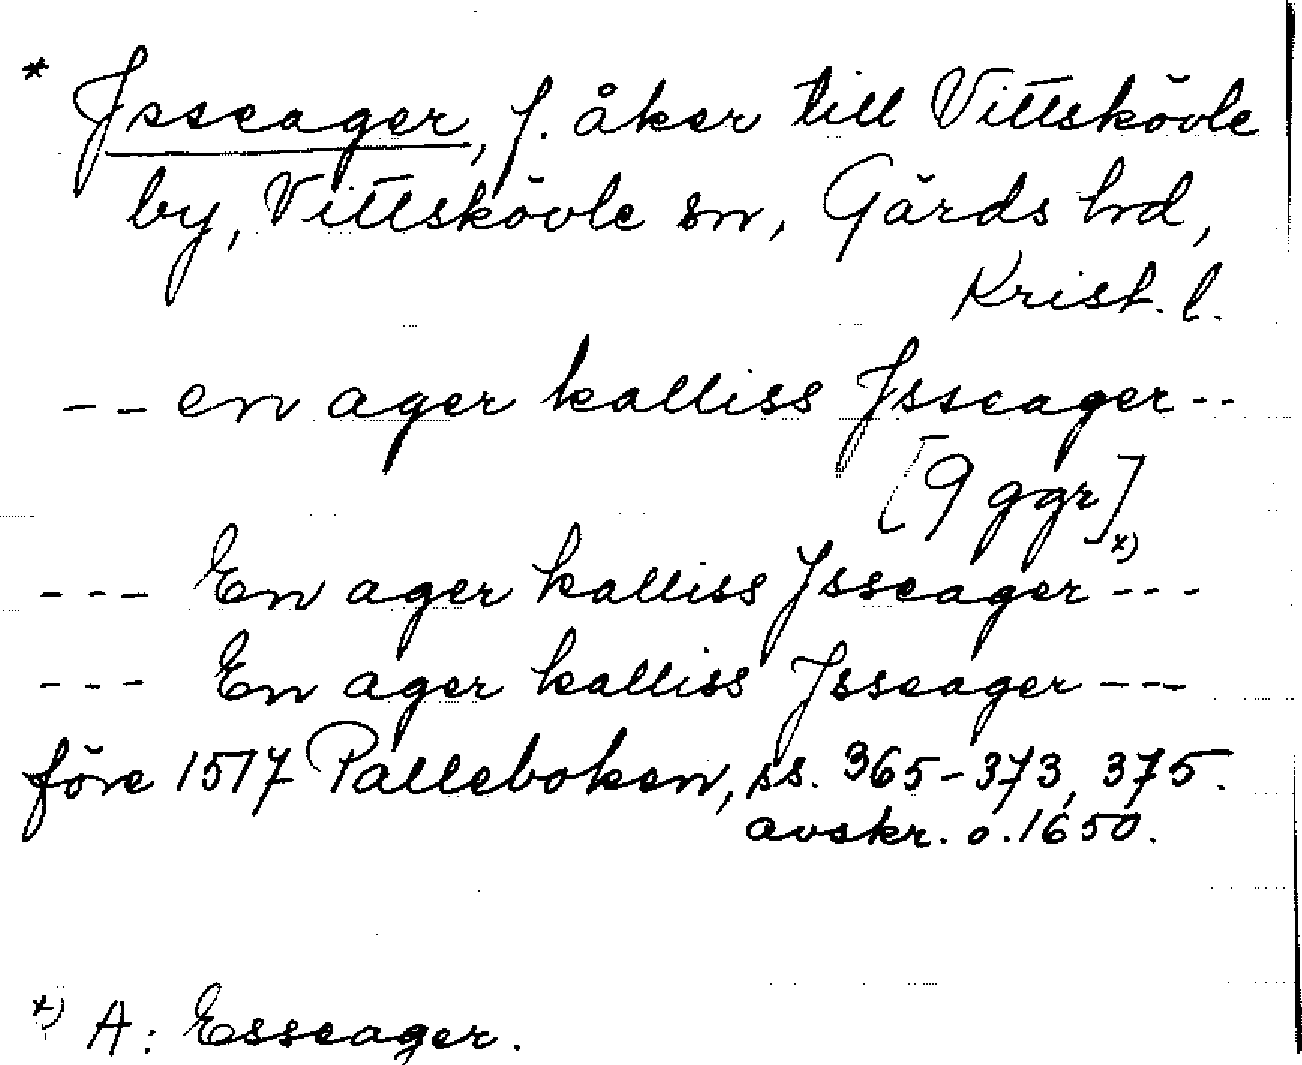 * Jsseager, f. åker till Vittskövle
by, Vittskövle sn, Gärds hd,
Krist. l.
-- en ager kalliss Jsseager --
[9 ggr]
--- En ager kalliss Jsseager x) ---
--- En ager kalliss Jsseager ---
före 1517 Palleboken, ss. 365-373, 375.
avskr. o. 1650.
x) A: Esseager.